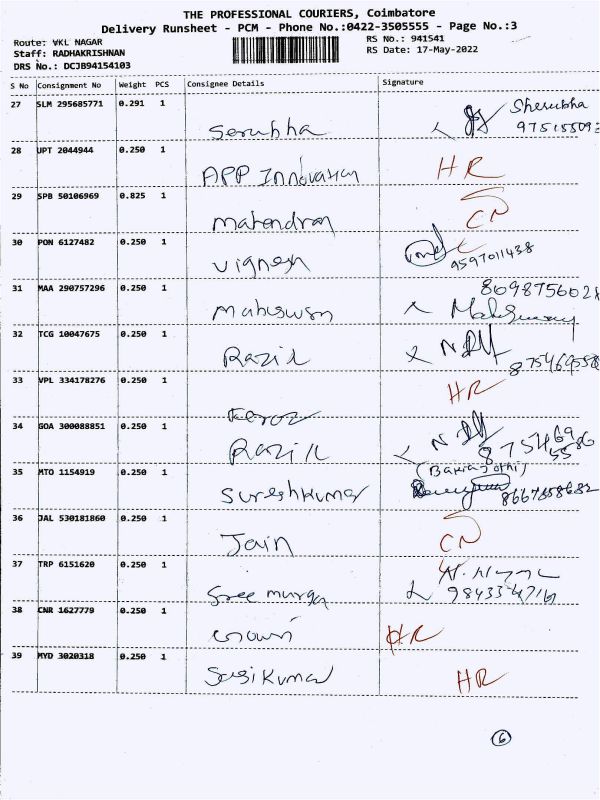 THE PROFESSIONAL COURIERS, Coimbatore
Delivery Runsheet - PCM - Phone No.:0422-3505555 - Page No.:3
Route: VKL NAGAR
RS No.: 941541
Staff: RADHAKRISHNAN
RS Date: 17-May-2022
DRS No.: DCJB94154103
S No Consignment No Weight PCS Consignee Details Signature
27 SLM 295685771 0.291 1 Serubha Sherubha
28 UPT 2044944 0.250 1 APP Innovation HR
29 SPB 50106969 0.825 1 Mahendran CN
30 PON 6127482 0.250 1 Vignesh 9597011438
31 MAA 290757296 0.250 1 Maheswsn
32 TCG 10047675 0.250 1 Razik
33 VPL 334178276 0.250 1 HR
34 GOA 300088851 0.250 1 Razik 8754695586
35 MTO 1154919 0.250 1 Sureshkumar 8667658682
36 JAL 530181860 0.250 1 Jain CN
37 TRP 6151620 0.250 1 Sree murga
38 CNR 1627779 0.250 1 HR
39 MYD 3020318 0.250 1 Sasikumar HR
6